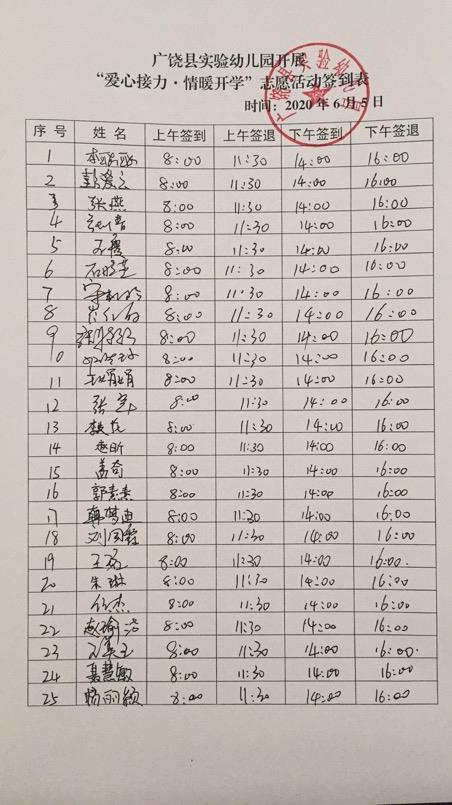 广饶县实验幼儿园开展
“爱心接力·情暖开学”志愿活动签到表
时间：2020年6月5日
序号 姓名 上午签到 上午签退 下午签到 下午签退
1 8:00 11:30 14:00 16:00
2 8:00 11:30 14:00 16:00
3 张燕 8:00 11:30 14:00 16:00
4 8:00 11:30 14:00 16:00
5 8:00 11:30 14:00 16:00
6 8:00 11:30 14:00 16:00
7 8:00 11:30 14:00 16:00
8 8:00 11:30 14:00 16:00
9 8:00 11:30 14:00 16:00
10 8:00 11:30 14:00 16:00
11 8:00 11:30 14:00 16:00
12 8:00 11:30 14:00 16:00
13 8:00 11:30 14:00 16:00
14 8:00 11:30 14:00 16:00
15 盖奇 8:00 11:30 14:00 16:00
16 郭素素 8:00 11:30 14:00 16:00
17 韩梦迪 8:00 11:30 14:00 16:00
18 8:00 11:30 14:00 16:00
19 8:00 11:30 14:00 16:00
20 朱琳 8:00 11:30 14:00 16:00
21 8:00 11:30 14:00 16:00
22 8:00 11:30 14:00 16:00
23 8:00 11:30 14:00 16:00
24 聂慧敏 8:00 11:30 14:00 16:00
25 杨丽颖 8:00 11:30 14:00 16:00